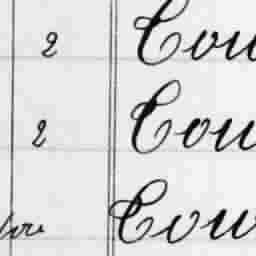 2 Cou
2 Cou
Cow